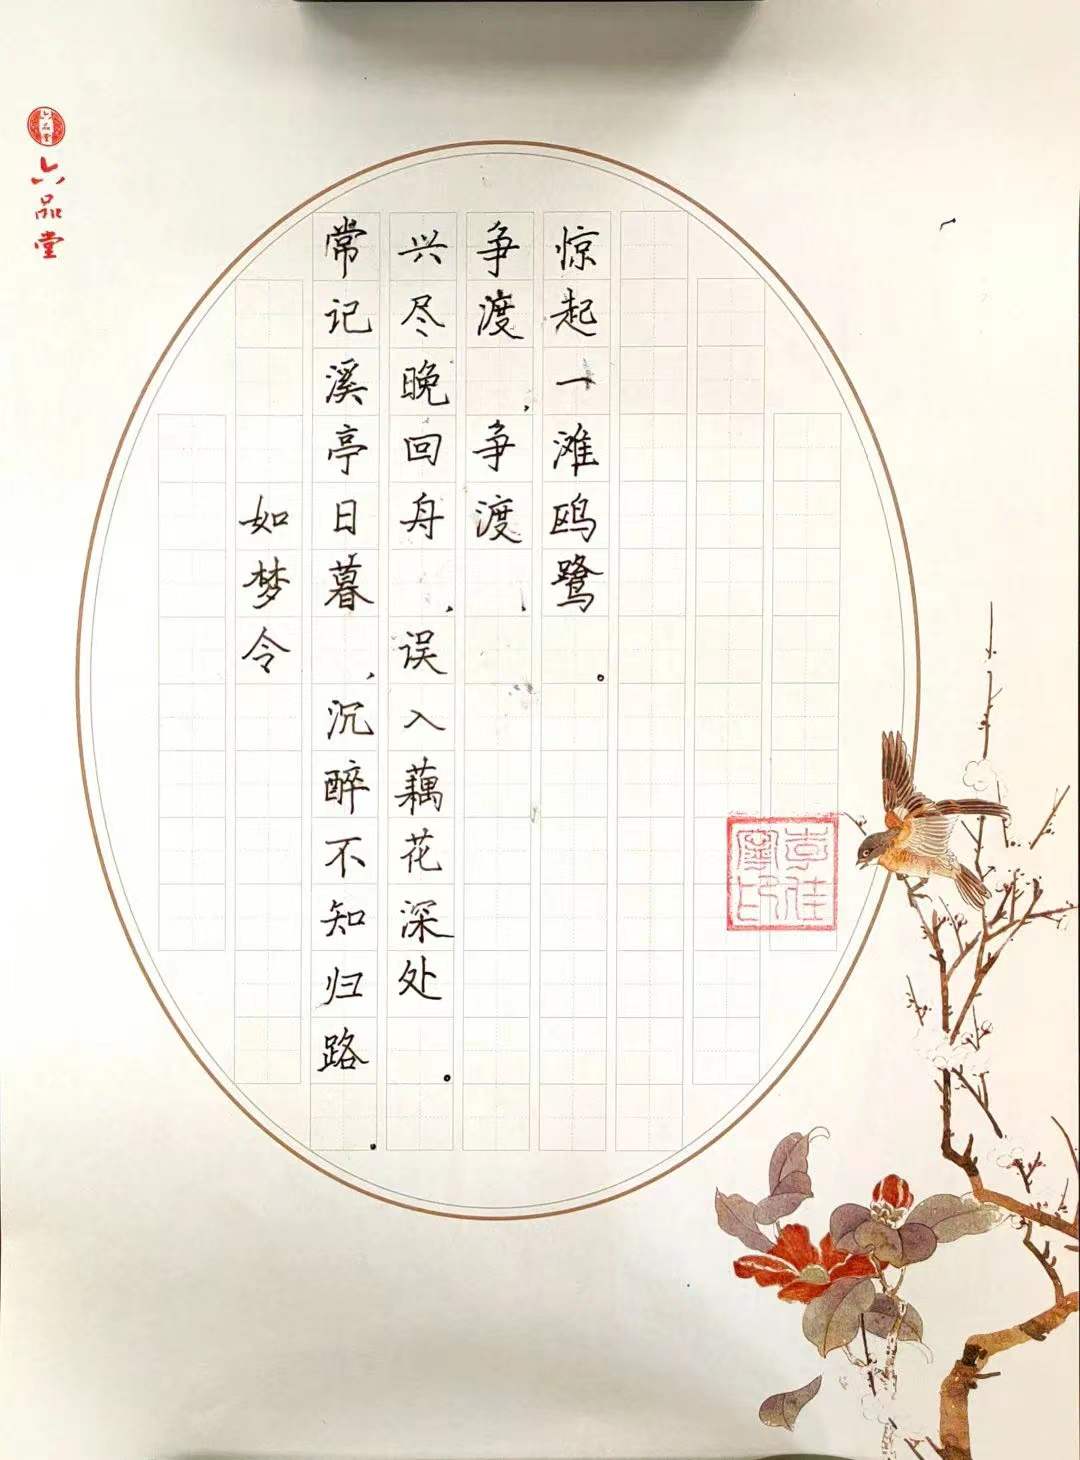 六品堂
六品堂
如梦令
常记溪亭日暮，沉醉不知归路.
兴尽晚回舟，误入藕花深处。
争渡，争渡，
惊起一滩鸥鹭。
李佳
印